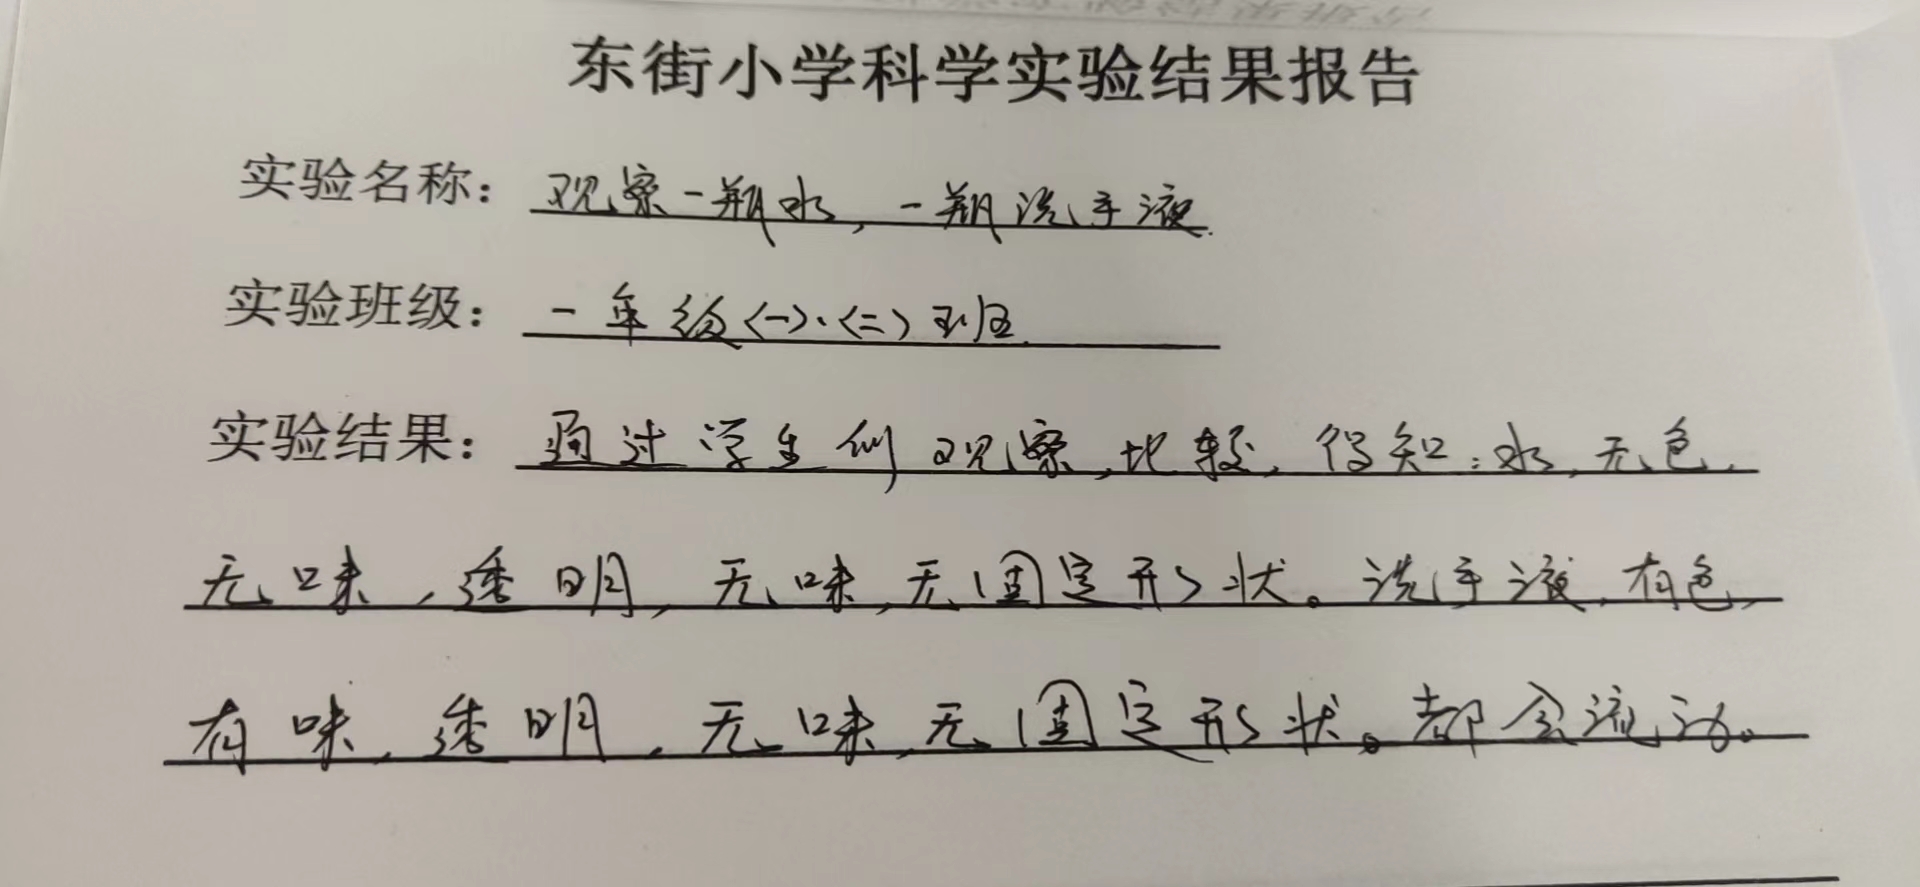 东街小学科学实验结果报告
实验名称：观察一瓶水，一瓶洗手液.
实验班级：一年级〈一〉、〈二〉班.
实验结果：通过学生们观察，比较，得知：水，无色，
无味，透明，无味，无固定形状。洗手液，有色，
有味，透明，无味，无固定形状。都会流动。